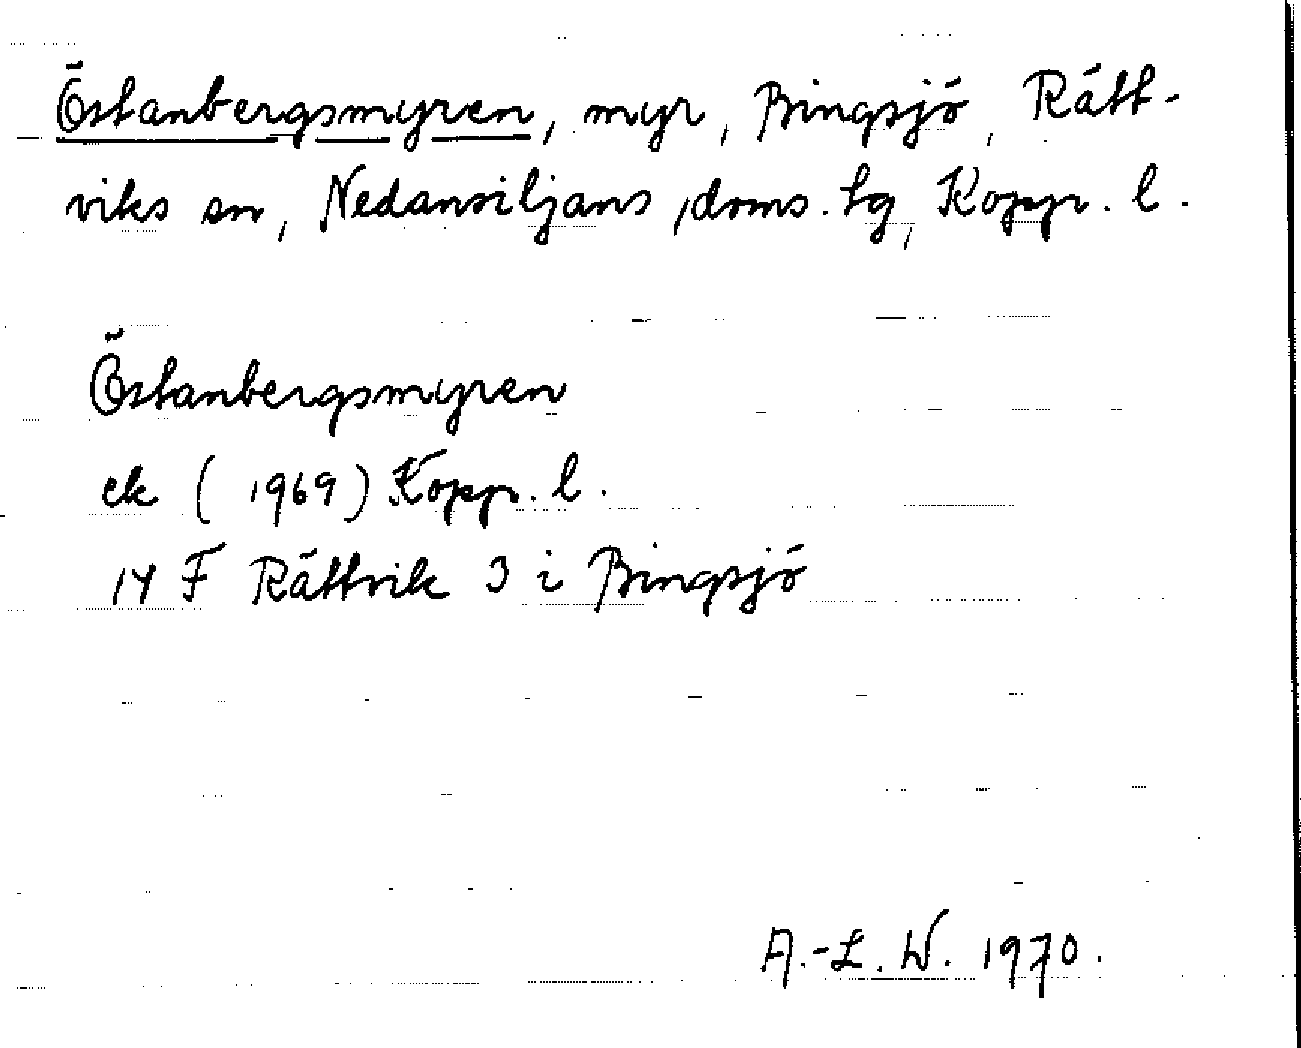 Östanbergsmyren, myr, Bingsjö, Rätt-
viks sn, Nedansiljans doms. tg, Kopp. l.
Östanbergsmyren
ek (1969) Kopp. l.
14 F Rättvik 3 i Bingsjö
A.-L. W. 1970.